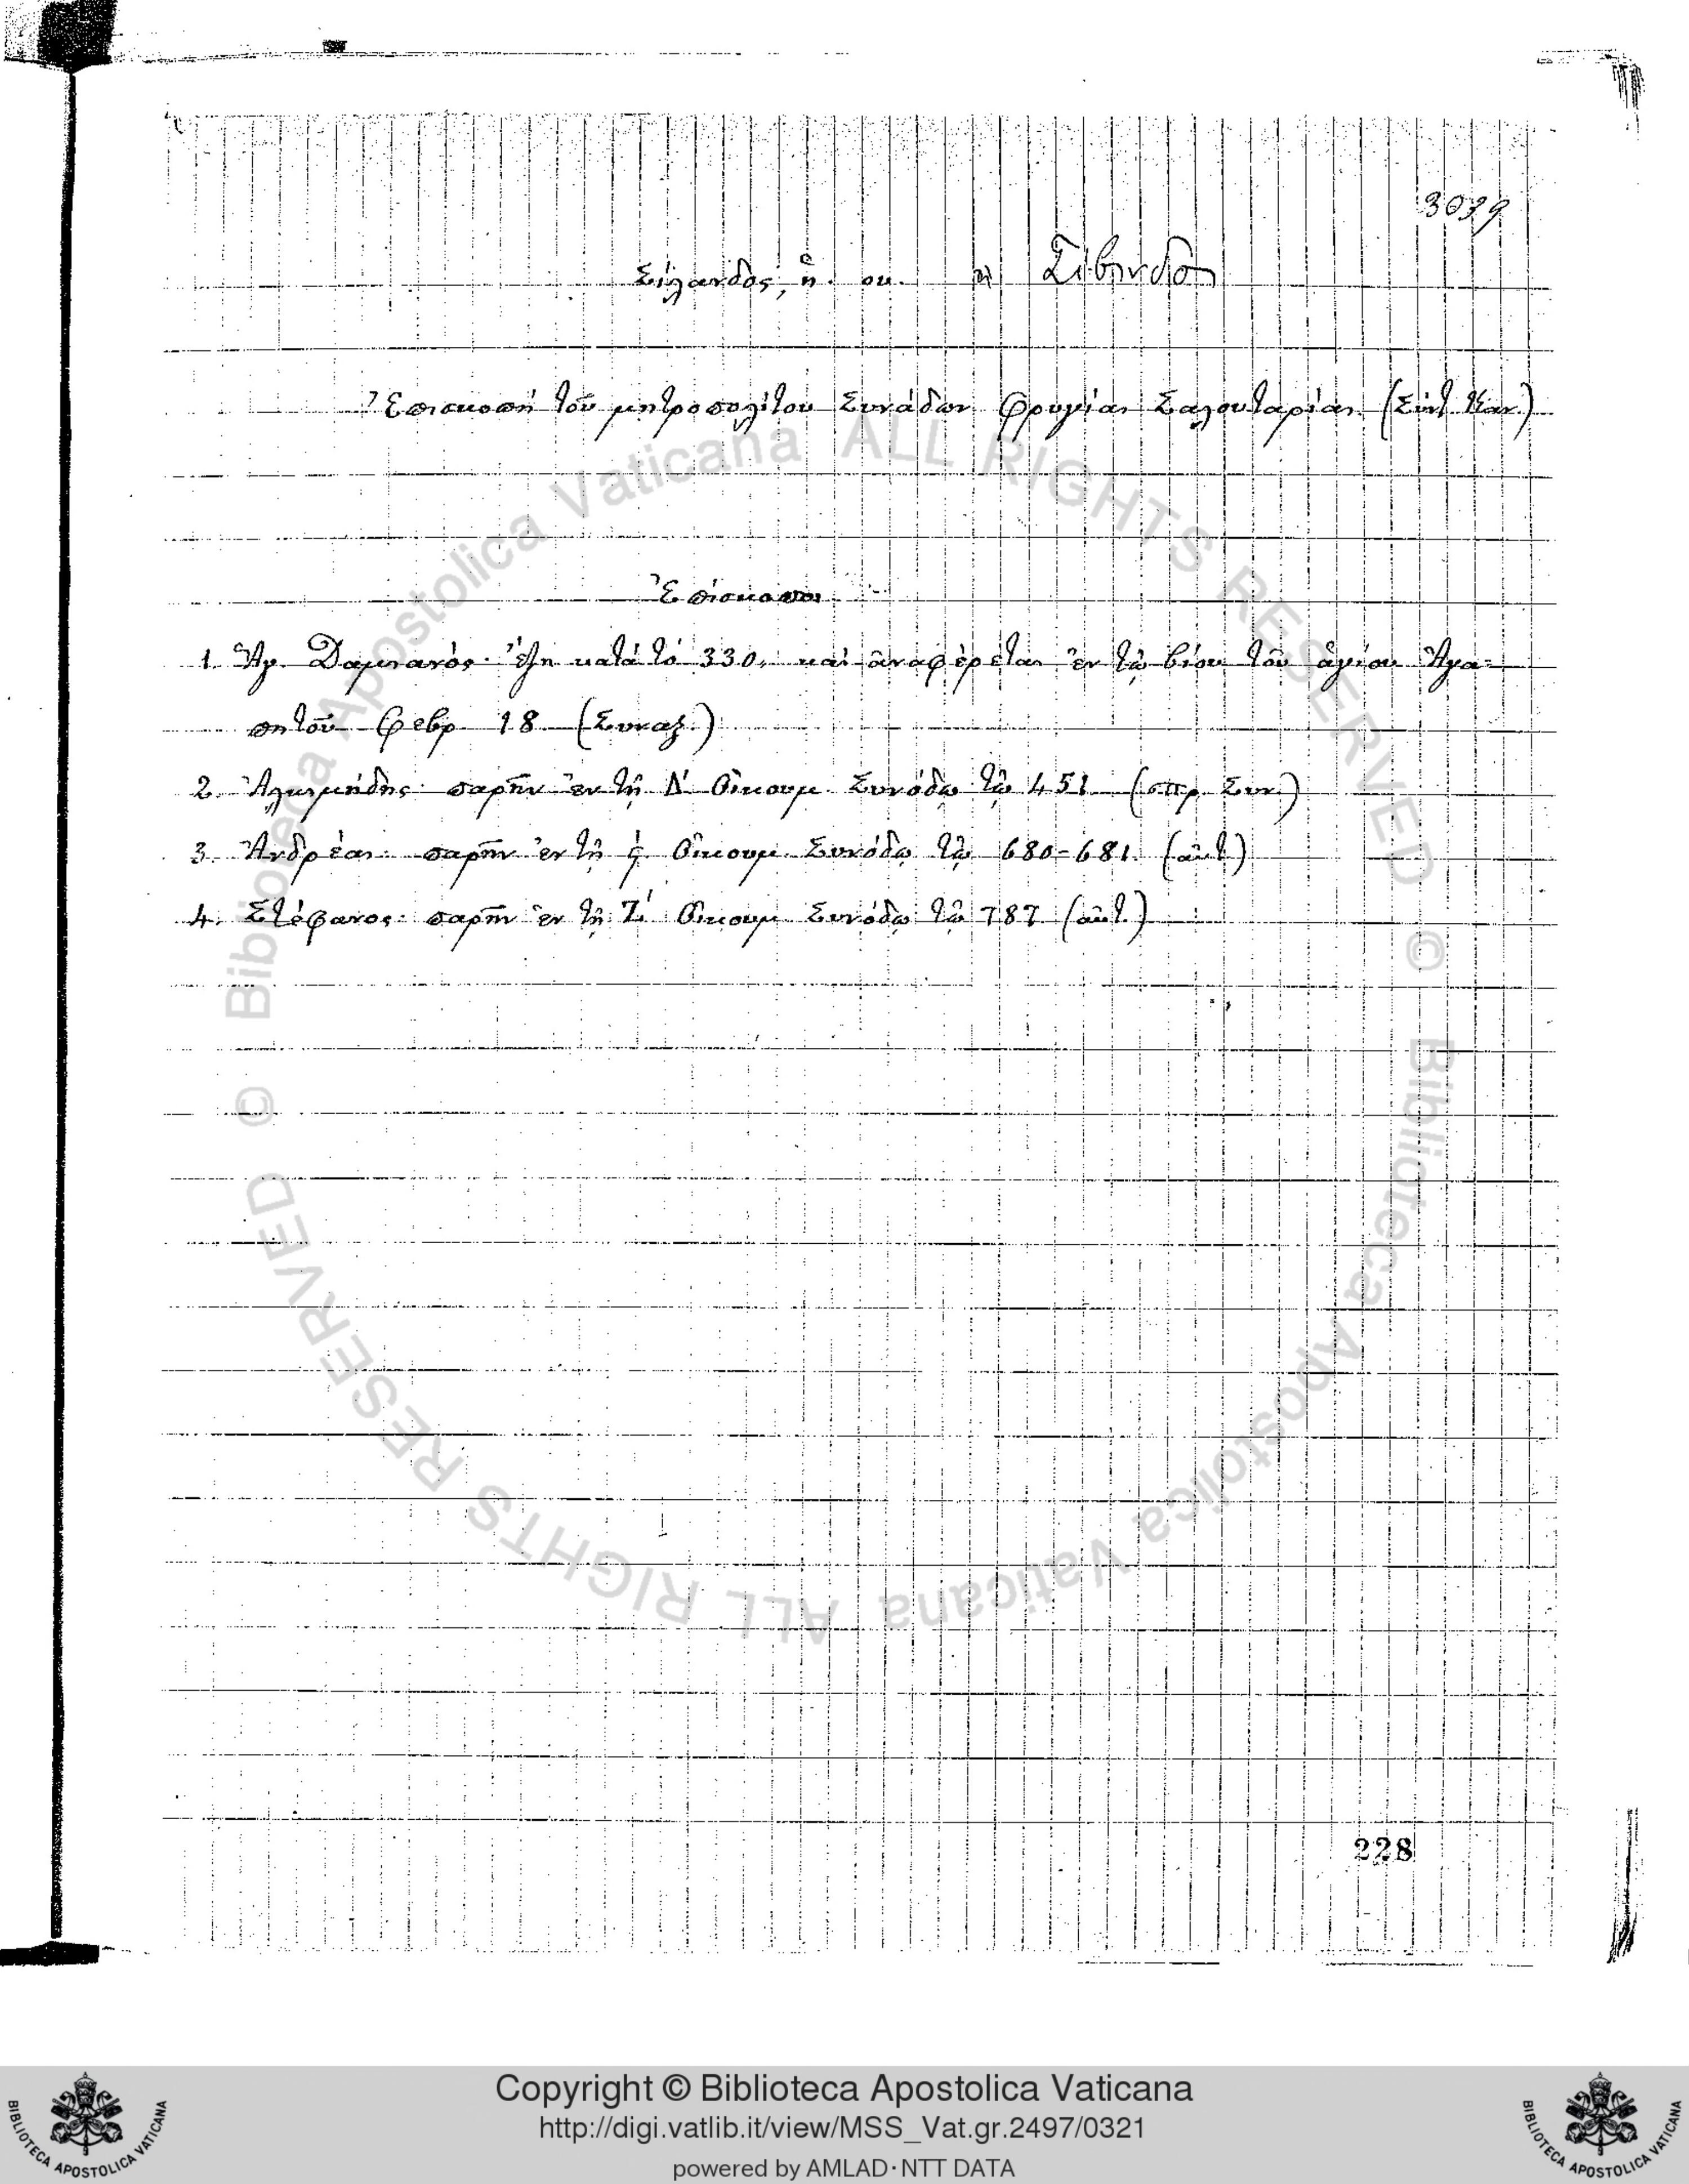 3039
Σίλανδος, ἡ. ου. ἢ Σίβινδος
Ἐπισκοπή τοῦ μητροπολίτου Συνάδων Φρυγίας Σαλουταρίας. (Σύντ. Καν.)
Ἐπίσκοποι
1. Ἅγ. Δαμιανός· ἔζη κατά τό 330, καί ἀναφέρεται ἐν τῷ βίου τοῦ ἁγίου Ἀγα-
πητοῦ Φεβρ 18 (Συναξ.)
2. Ἀλκιμήδης· παρῆν ἐν τῇ Δ΄ Οἰκουμ. Συνόδῳ τῷ 451 (πρ. Συν.)
3. Ἀνδρέας· παρῆν ἐν τῇ ϛ΄ Οἰκουμ. Συνόδῳ τῷ 680-681. (αὐτ.)
4. Στέφανος· παρῆν ἐν τῇ Ζ΄ Οἰκουμ Συνόδῳ τῷ 787 (αὐτ.)
228
© Biblioteca Apostolica Vaticana ALL RIGHTS RESERVED © Biblioteca Apostolica Vaticana ALL RIGHTS RESERVED
Copyright © Biblioteca Apostolica Vaticana
http://digi.vatlib.it/view/MSS_Vat.gr.2497/0321
powered by AMLAD·NTT DATA
BIBLIOTECA APOSTOLICA VATICANA
BIBLIOTECA APOSTOLICA VATICANA